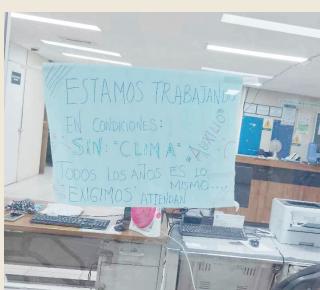 ESTAMOS TRABAJANDO
EN CONDICIONES:
SIN: "CLIMA" "AUXILIO"
TODOS LOS AÑOS ES LO
MISMO....
"EXIGIMOS" ATIENDAN